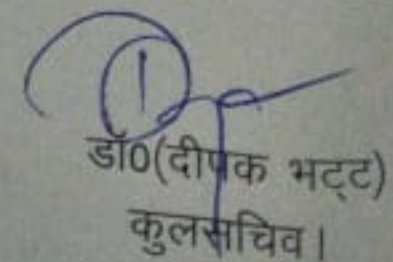 डॉ0(दीपक भट्ट)
कुलसचिव।